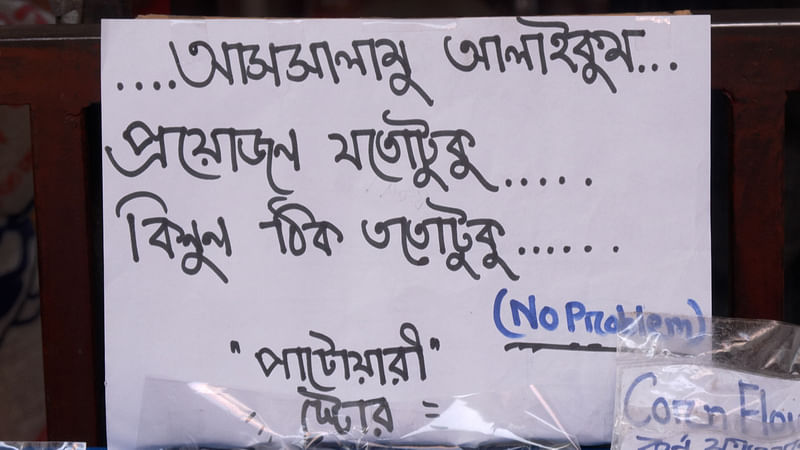 ....আসসালামু আলাইকুম...
প্রয়োজন যতোটুকু.....
কিনুন ঠিক ততোটুকু......
(No Problem)
"পাটোয়ারী"
স্টোর =
Corn Flou
কর্ন